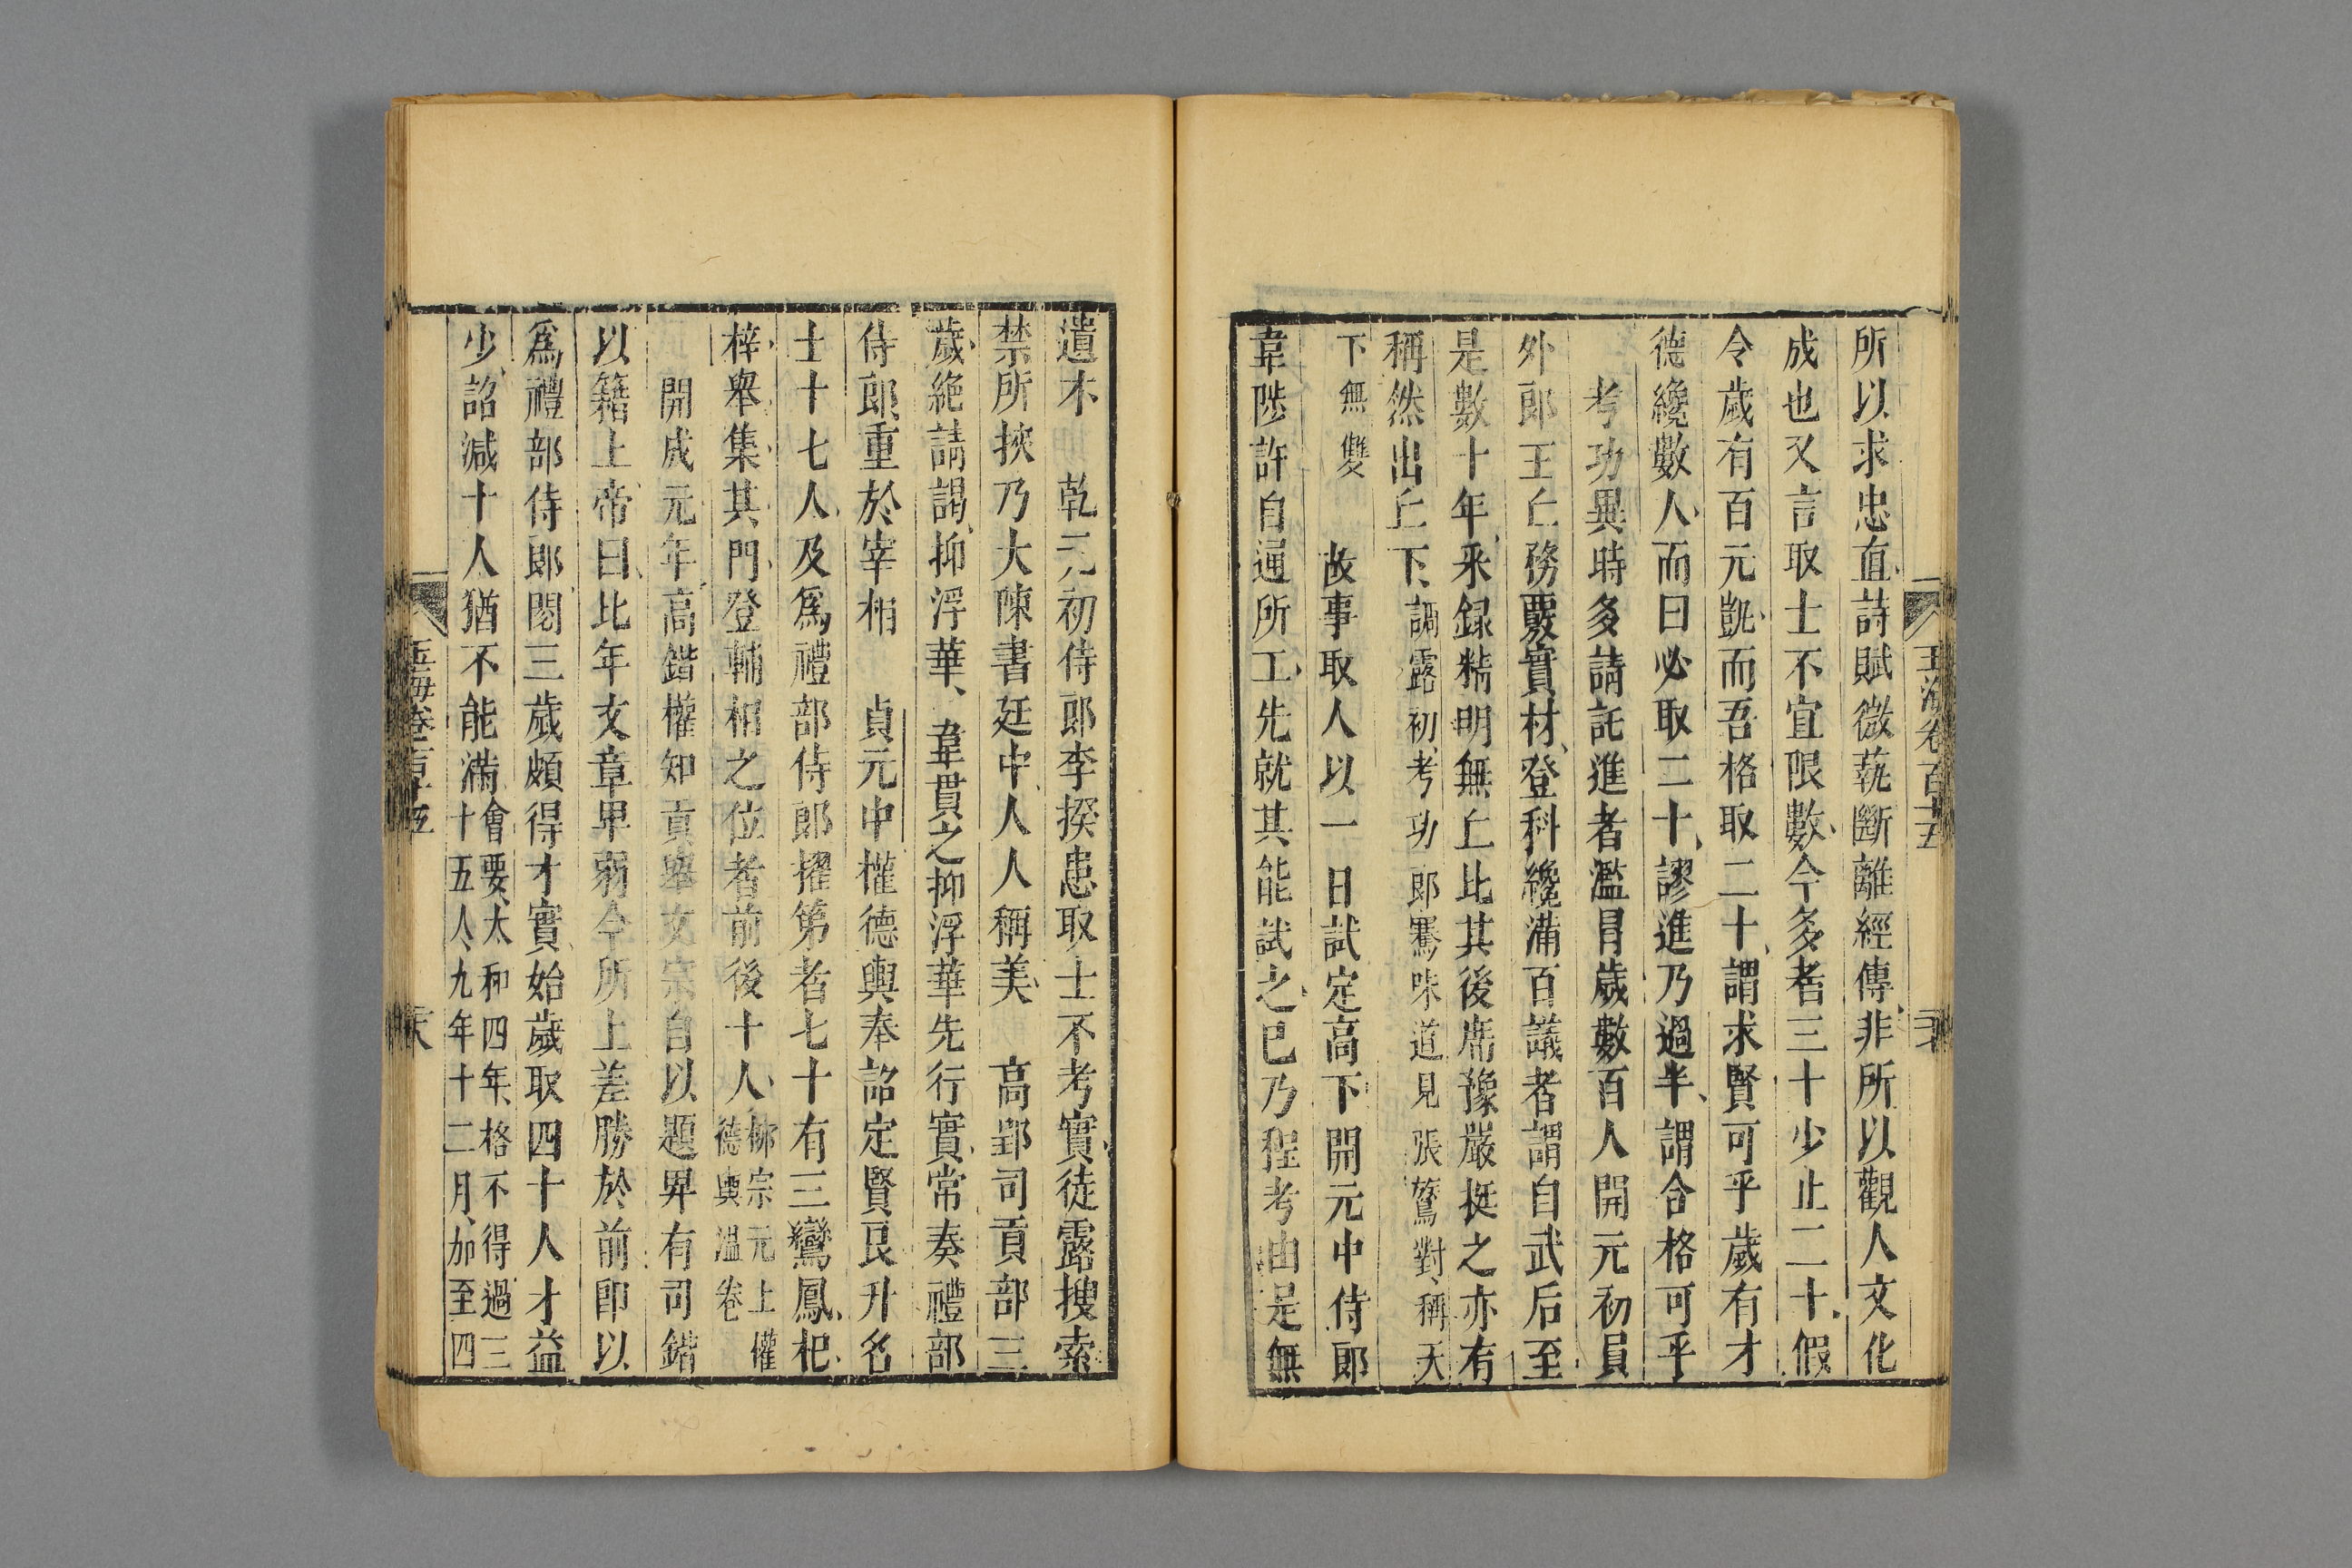 玉海卷百十五
所以求忠直詩賦微蓺斷離經傳非所以觀人文化
成也又言取士不宜限數今多者三十少止二十假
令歲有百元凱而吾格取二十謂求賢可乎歲有才
德纔數人而曰必取二十謬進乃過半謂合格可乎
考功異時多請託進者濫冒歲數百人開元初員
外郎王丘務覈實材登科纔滿百議者謂自武后至
是數十年采録精明無丘比其後席豫嚴挺之亦有
稱然出丘下調露初考功郎騫味道見張鷟對稱天
下無雙 故事取人以一日試定高下開元中侍郎
韋陟許自通所工先就其能試之已乃程考由是無
遺木 乾元初侍郎李揆患取士不考實徒露搜索
禁所挾乃大陳書廷中人人稱美 高郢司貢部三
歲絶請謁抑浮華 韋貫之抑浮華先行實常奏禮部
侍郎重於宰相 貞元中權德輿奉詔定賢良升名
士十七人及爲禮部侍郎擢第者七十有三鸞鳳杞
梓舉集其門登輔相之位者前後十人柳宗元上權
德輿温卷
開成元年高鍇權知貢舉文宗自以題畀有司鍇
以籍上帝曰比年文章卑弱今所上差勝於前卽以
爲禮部侍郎閱三歲頗得才實始歲取四十人才益
少詔減十人猶不能滿會要太和四年格不得過三
十五人九年十二月加至四
玉海卷百十五